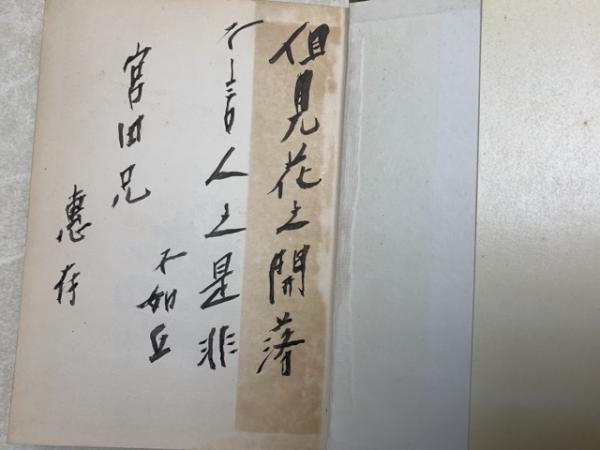 但見花之開落
不言人之是非
不如丘
宮田兄
惠存